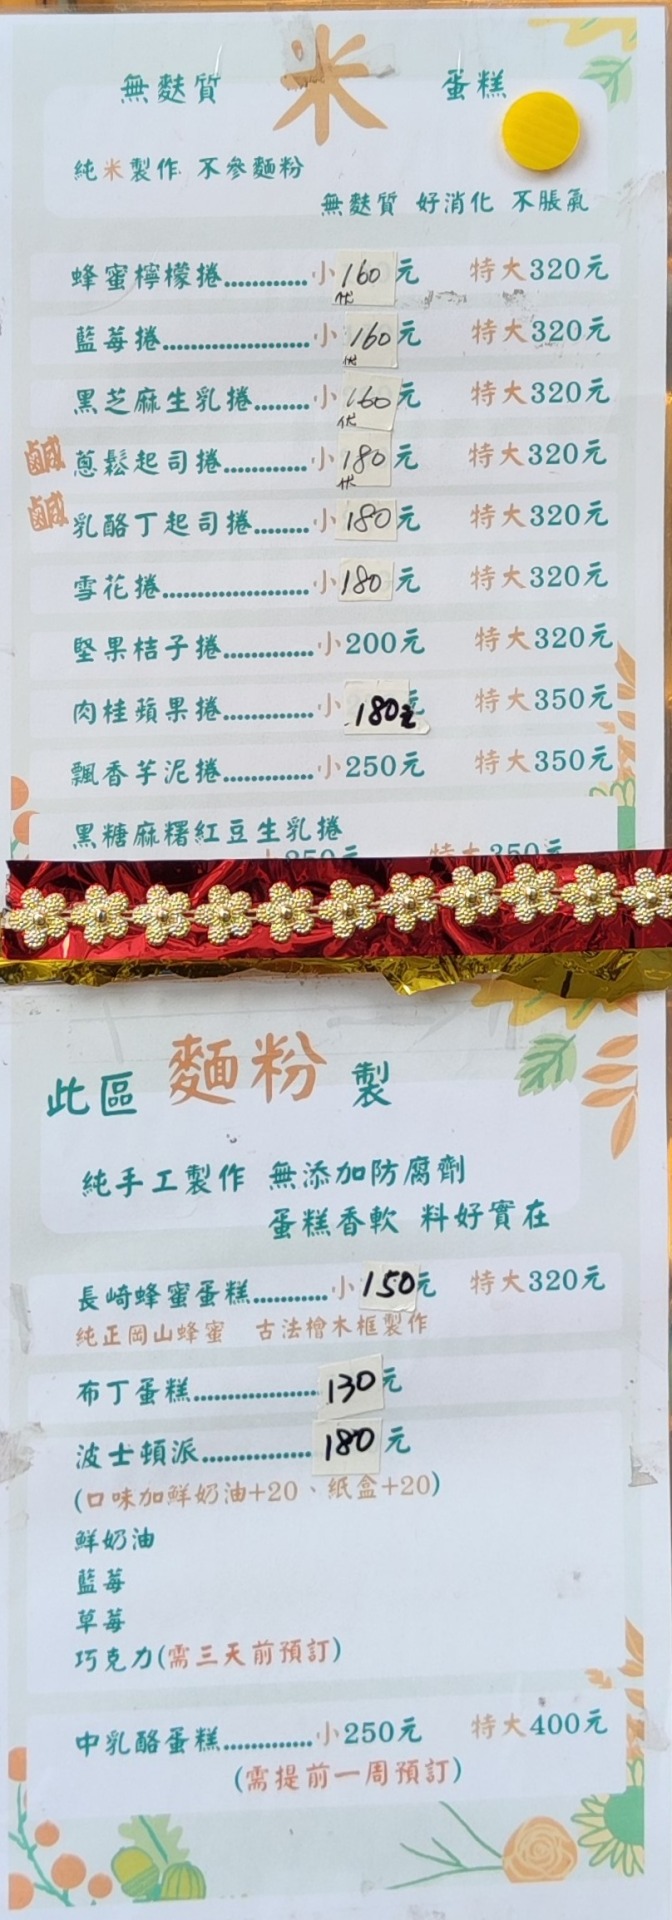 無麩質 米 蛋糕
純米製作 不參麵粉
無麩質 好消化 不脹氣
蜂蜜檸檬捲............小160元 特大320元
藍莓捲......................小160元 特大320元
黑芝麻生乳捲........小160元 特大320元
鹹 蔥鬆起司捲............小180元 特大320元
鹹 乳酪丁起司捲........小180元 特大320元
雪花捲......................小180元 特大320元
堅果桔子捲.............小200元 特大320元
肉桂蘋果捲.............小180元 特大350元
飄香芋泥捲.............小250元 特大350元
黑糖麻糬紅豆生乳捲
特大350元
此區 麵粉 製
純手工製作 無添加防腐劑
蛋糕香軟 料好實在
長崎蜂蜜蛋糕...........小150元 特大320元
純正岡山蜂蜜 古法檜木框製作
布丁蛋糕...................130元
波士頓派.................180元
(口味加鮮奶油+20、紙盒+20)
鮮奶油
藍莓
草莓
巧克力(需三天前預訂)
中乳酪蛋糕.............小250元 特大400元
(需提前一周預訂)